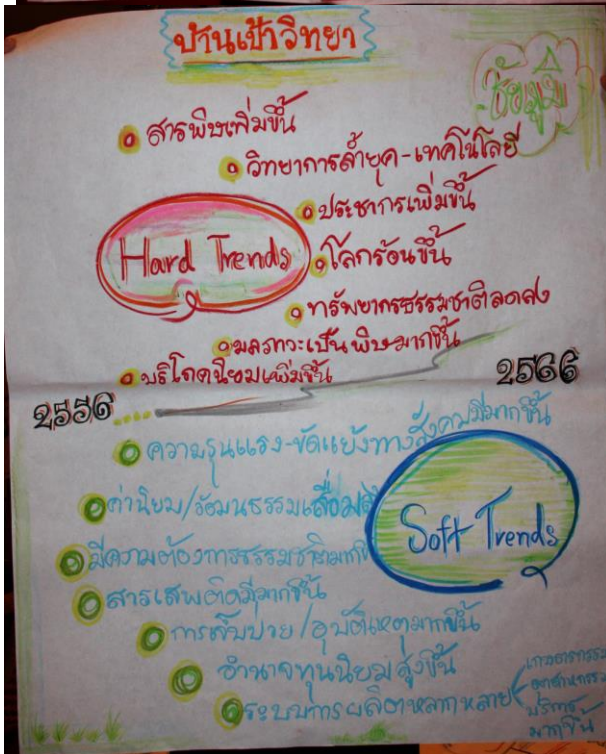 บ้านเป้าวิทยา
ชัยภูมิ
สารพิษเพิ่มขึ้น
วิทยาการล้ำยุค-เทคโนโลยี
ประชากรเพิ่มขึ้น
Hard Trends
โลกร้อนขึ้น
ทรัพยากรธรรมชาติลดลง
มลภาวะเป็นพิษมากขึ้น
บริโภคนิยมเพิ่มขึ้น
2556....
2566
ความรุนแรง-ขัดแย้งทางสังคมมีมากขึ้น
ค่านิยม/วัฒนธรรมเสื่อม
Soft Trends
มีความต้องการธรรมชาติมาก
สารเสพติดมีมากขึ้น
การเจ็บป่วย/อุบัติเหตุมากขึ้น
อำนาจทุนนิยมสูงขึ้น
ระบบการผลิตหลากหลาย
เกษตรกรรม
อุตสาหกรรม
บริการ
มากขึ้น